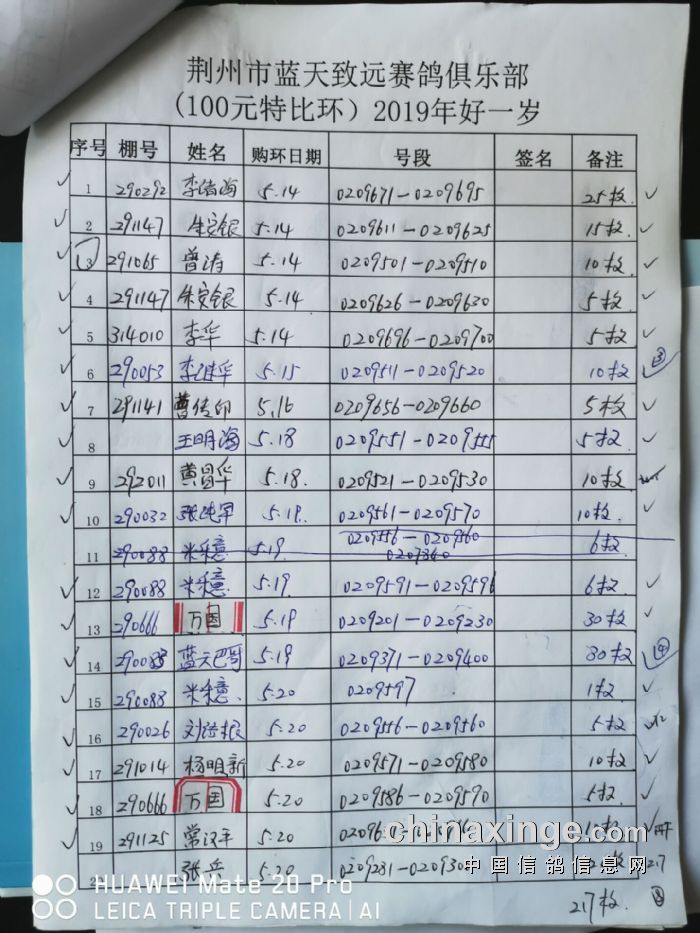 荆州市蓝天致远赛鸽俱乐部
（100元特比环）2019年好一岁
序号 棚号 姓名 购环日期 号段 签名 备注
1 290292 李浩海 5.14 0209671-0209695 25枚
2 291147 朱安银 5.14 0209611-0209625 15枚
3 291065 曾涛 5.14 0209501-0209510 10枚
4 291147 朱安银 5.14 0209626-0209630 5枚
5 314010 李华 5.14 0209696-0209700 5枚
6 290053 李继华 5.15 0209511-0209520 10枚 ③
7 291141 曹传印 5.16 0209656-0209660 5枚
8 王明海 5.18 0209551-0209555 5枚
9 292011 黄昌华 5.18. 0209521-0209530 10枚
10 290032 张 军 5.18. 0209561-0209570 10枚
11 290088 米穗 5.19 0209556-0209560 6枚
0209840
12 290088 米穗. 5.19 0209591-0209596 6枚
13 290666 万国 5.19 0209201-0209230 30枚
14 290088 蓝天巴哥 5.19 0209371-0209400 30枚 ④
15 290088 米穗. 5.20 0209597. 1枚
16 290026 刘 根 5.20 0209556-0209560 5枚
17 291014 杨明新 5.20 0209571-0209580 10枚
18 290666 万国 5.20 0209586-0209590 5枚
19 291125 常汉平 5.20
张兵 5.20 217
217枚
chinaxinge.com
中国信鸽信息网
HUAWEI Mate 20 Pro
LEICA TRIPLE CAMERA | AI